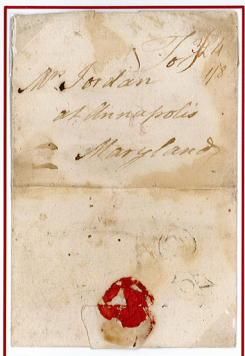 To
Mr Jordan
at Annapolis
Maryland